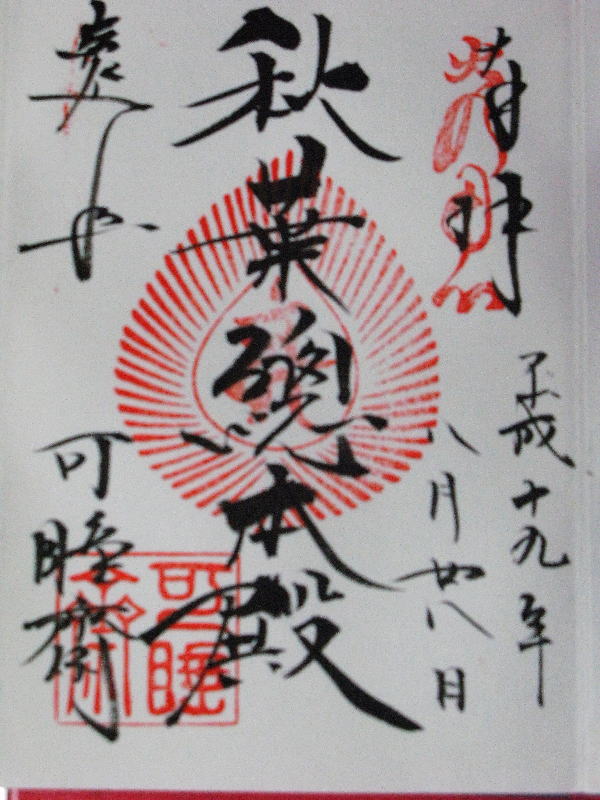 奉拝
平成十九年
八月廿八日
秋葉總本殿
遠州
可睡齋
可睡齋